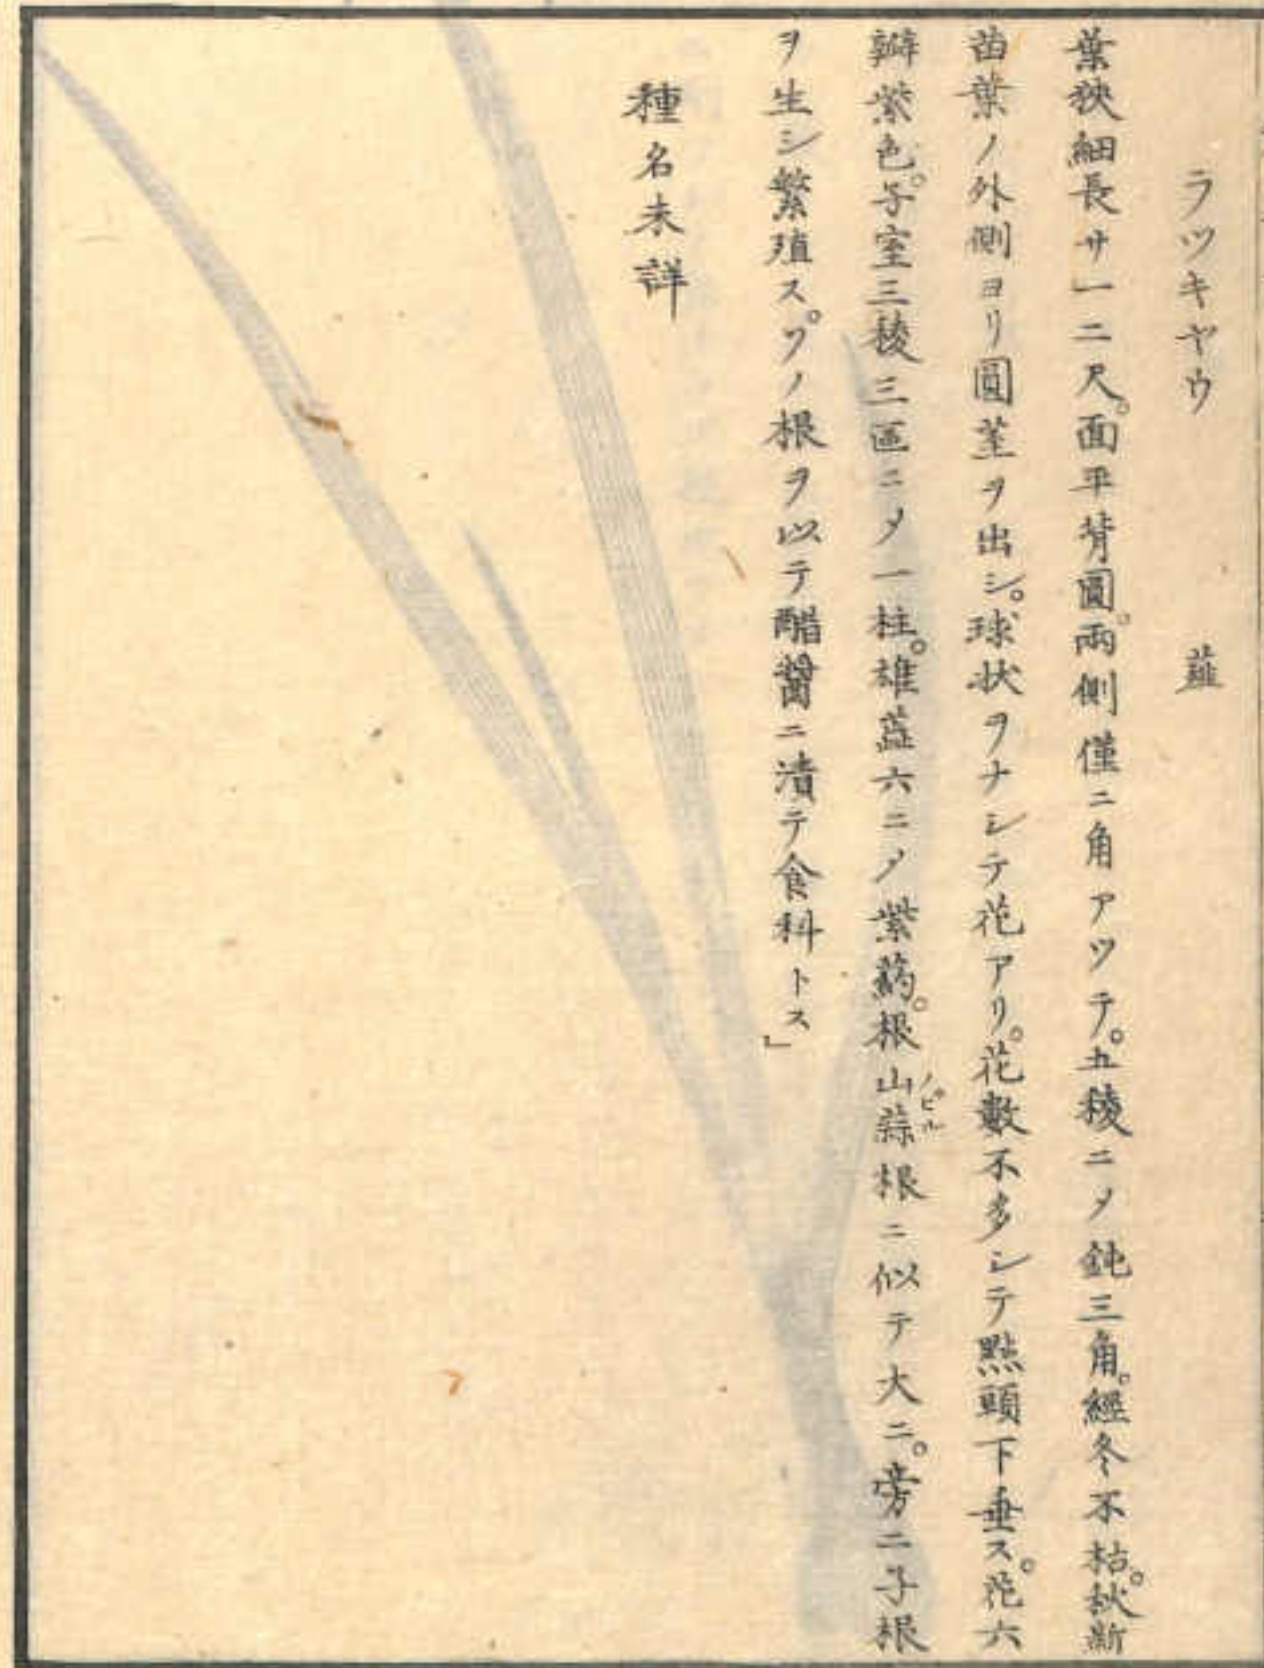 ラツキヤウ　薤
葉狹細長サ」一二尺。面平背圓。兩側僅ニ角アツテ。五稜ニメ鈍三角。經冬不枯。秋新
苗葉ノ外側ヨリ圓莖ヲ出シ。球状ヲナシテ花アリ。花數不多シテ點頭下垂ス。花六
瓣紫色。子室三稜三區ニメ一柱。雄蕋六ニメ紫葯。根山蒜根ニ似テ大ニ。旁ニ子根
ノビル
ヲ生シ繁殖ス。ソノ根ヲ以テ醋醬ニ漬テ食料トス」
種名未詳